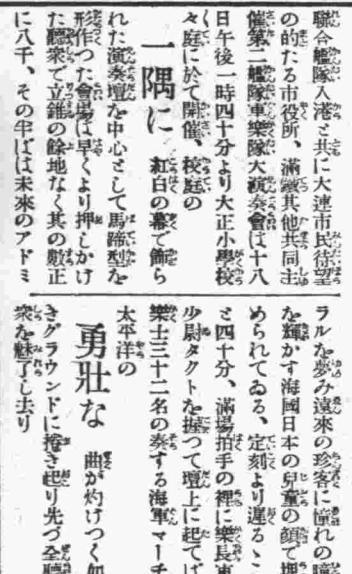 聯合艦隊入港と共に大連市民待望
の的たる市役所、滿鐵其他共同主
催第二艦隊軍樂隊大演奏會は十八
日午後一時四十分より大正小學校
々庭に於て開催、校庭の
一隅に 紅白の幕で飾ら
れた演奏壇を中心として馬蹄型を
形作つた會場は早くより押しかけ
た聽衆で立錐の餘地なく其の數正
に八千、その半ばは未來のアドミ
ラルを夢み遠來の珍客に憧れの瞳
を輝かす海國日本の兒童の顔で埋
められてゐる、定刻より遲るゝこ
と四十分、滿場拍手の裡に樂長
少尉タクトを握つて壇上に起てば
樂士三十二名の奏する海軍マーチ
太平洋の
勇壯な 曲が灼けつく如
きグラウンドに捲き起り先づ全聽
衆を魅了し去り